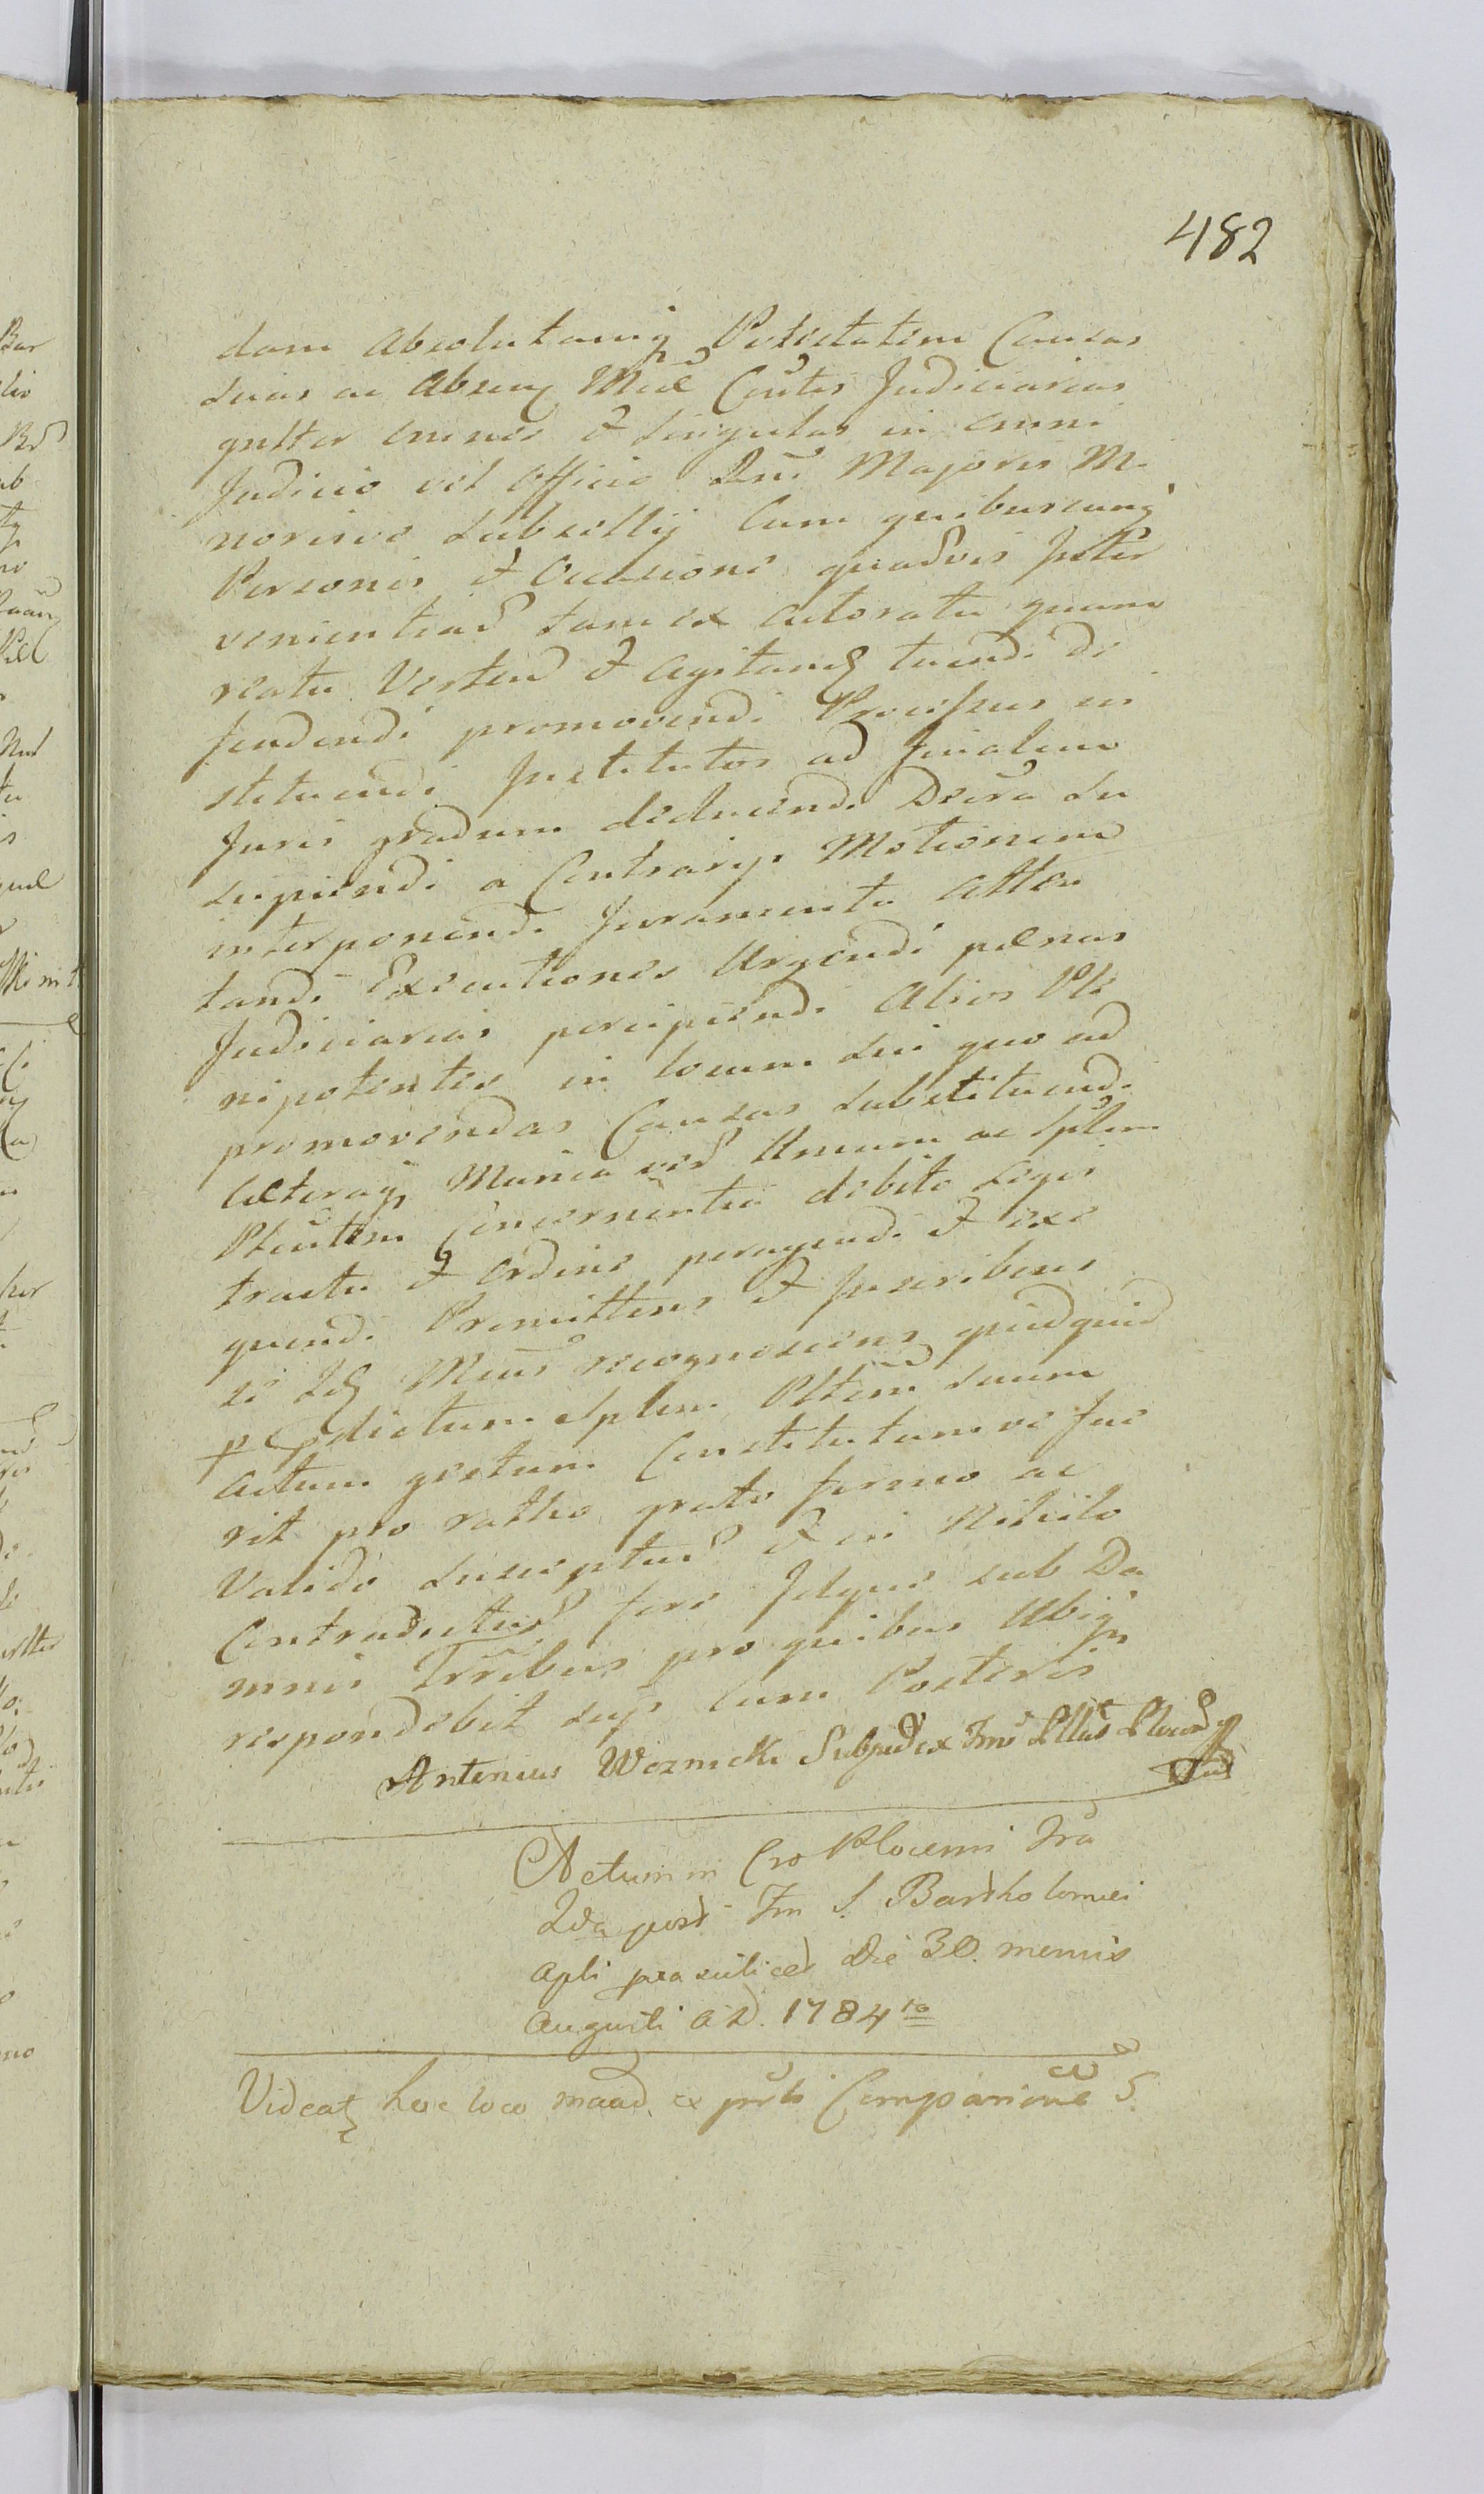 482
dam absolutamq Potestatem Causas
suas ac absenq Mūl Coūtes Judiciarias
gnlter omnes & singulas in omni
Judicio vel Officio Rni Majoris Mi
norisve Subsellij Cum quibuscunq
Personis & Occasione quadvis Inter
venientiad tam ex actoratu quam
reatu Verten & agitan tuendi de
fendendi promovendi Processus in
stituendi Institutos ad finalem
Juris gradum deducendi Decra su
scipiendi a Contrarijs Motionem
interponendi Juramenta atten
tandi Executiones Urgendi pænas
Judiciarias percipiendi alios Ple
nipotentes in locum sui quo ad
promovendas Causas substituendi
Cæteraq Munia verd Unum ac Splem
Pleūtem Concernentia debito Legis
tractu & ordine peragendi & exe
quendi Promittens & Inscribens
se Idq Meus recognoscens quidquid
p dictum Splem Pltēm suum
actum gestum Constitutumve fue
rit pro ratho grato firmo ac
Valido suscepturd & in Nihilo
Contradicturd fore Idque sub Da
mnis Trribus pro quibus Ubiq
respondebit seq. Cum Posteris
Antonius Woznicki Subjudex
Actum in Cro Plocensi Fra
2da post Fm S. Bartholomæi
Apli pra scilicet Die 30. mensis
Augusti A D. 1784to
Videat hoc loco maad ex prti Comparitione S.